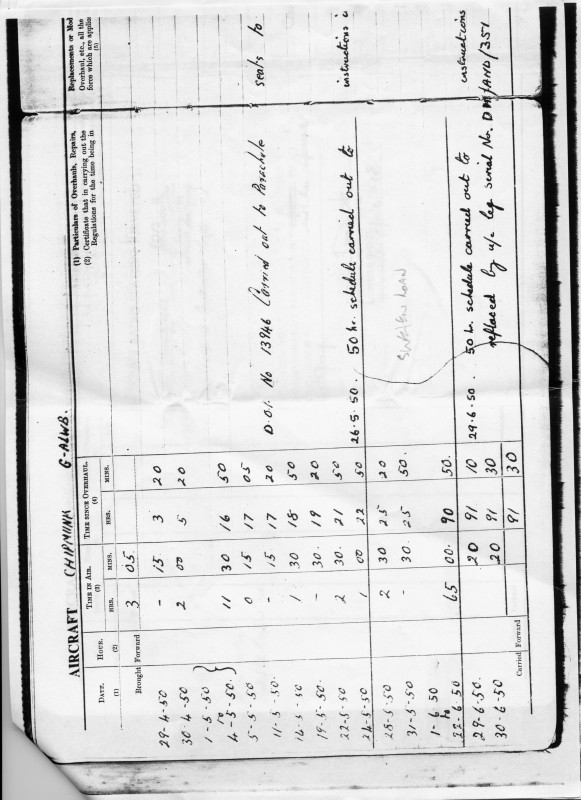 AIRCRAFT CHIPMUNK G-ALWB.
DATE. (1) HOUR. (2) TIME IN AIR. (3) TIME SINCE OVERHAUL. (4)
(1) Particulars of Overhauls, Repairs,
(2) Certificate that in carrying out the
Regulations for the time being in
Replacements or Mod
Overhaul, etc., all the
force which are applica
(5)
HRS. MINS. HRS. MINS.
Brought Forward 3 05
29-4-50 - 15 3 20
30-4-50 2 00 5 20
1-5-50
to
4-5-50. 11 30 16 50
5-5-50 0 15 17 05
11-5-50. - 15 17 20 No 13946 Carried out to Parachute seals to
16-5-50. 1 30 18 50
19-5-50. - 30. 19 20
22-5-50 2 30. 21 50
24-5-50 1 00 22 50 26.5.50. 50 hr. schedule carried out to instructions
25-5-50 2 30 25 20
31-5-50 - 30. 25 50. SWEDEN LOAN
1-6-50
to
22-6-50 65 00. 90 50.
29-6-50. 20 91. 10 29.6.50. 50 hr. schedule carried out to instructions
30-6-50 20 91 30 replaced by u/c leg serial No. DM/AND/351.
Carried Forward 91 30